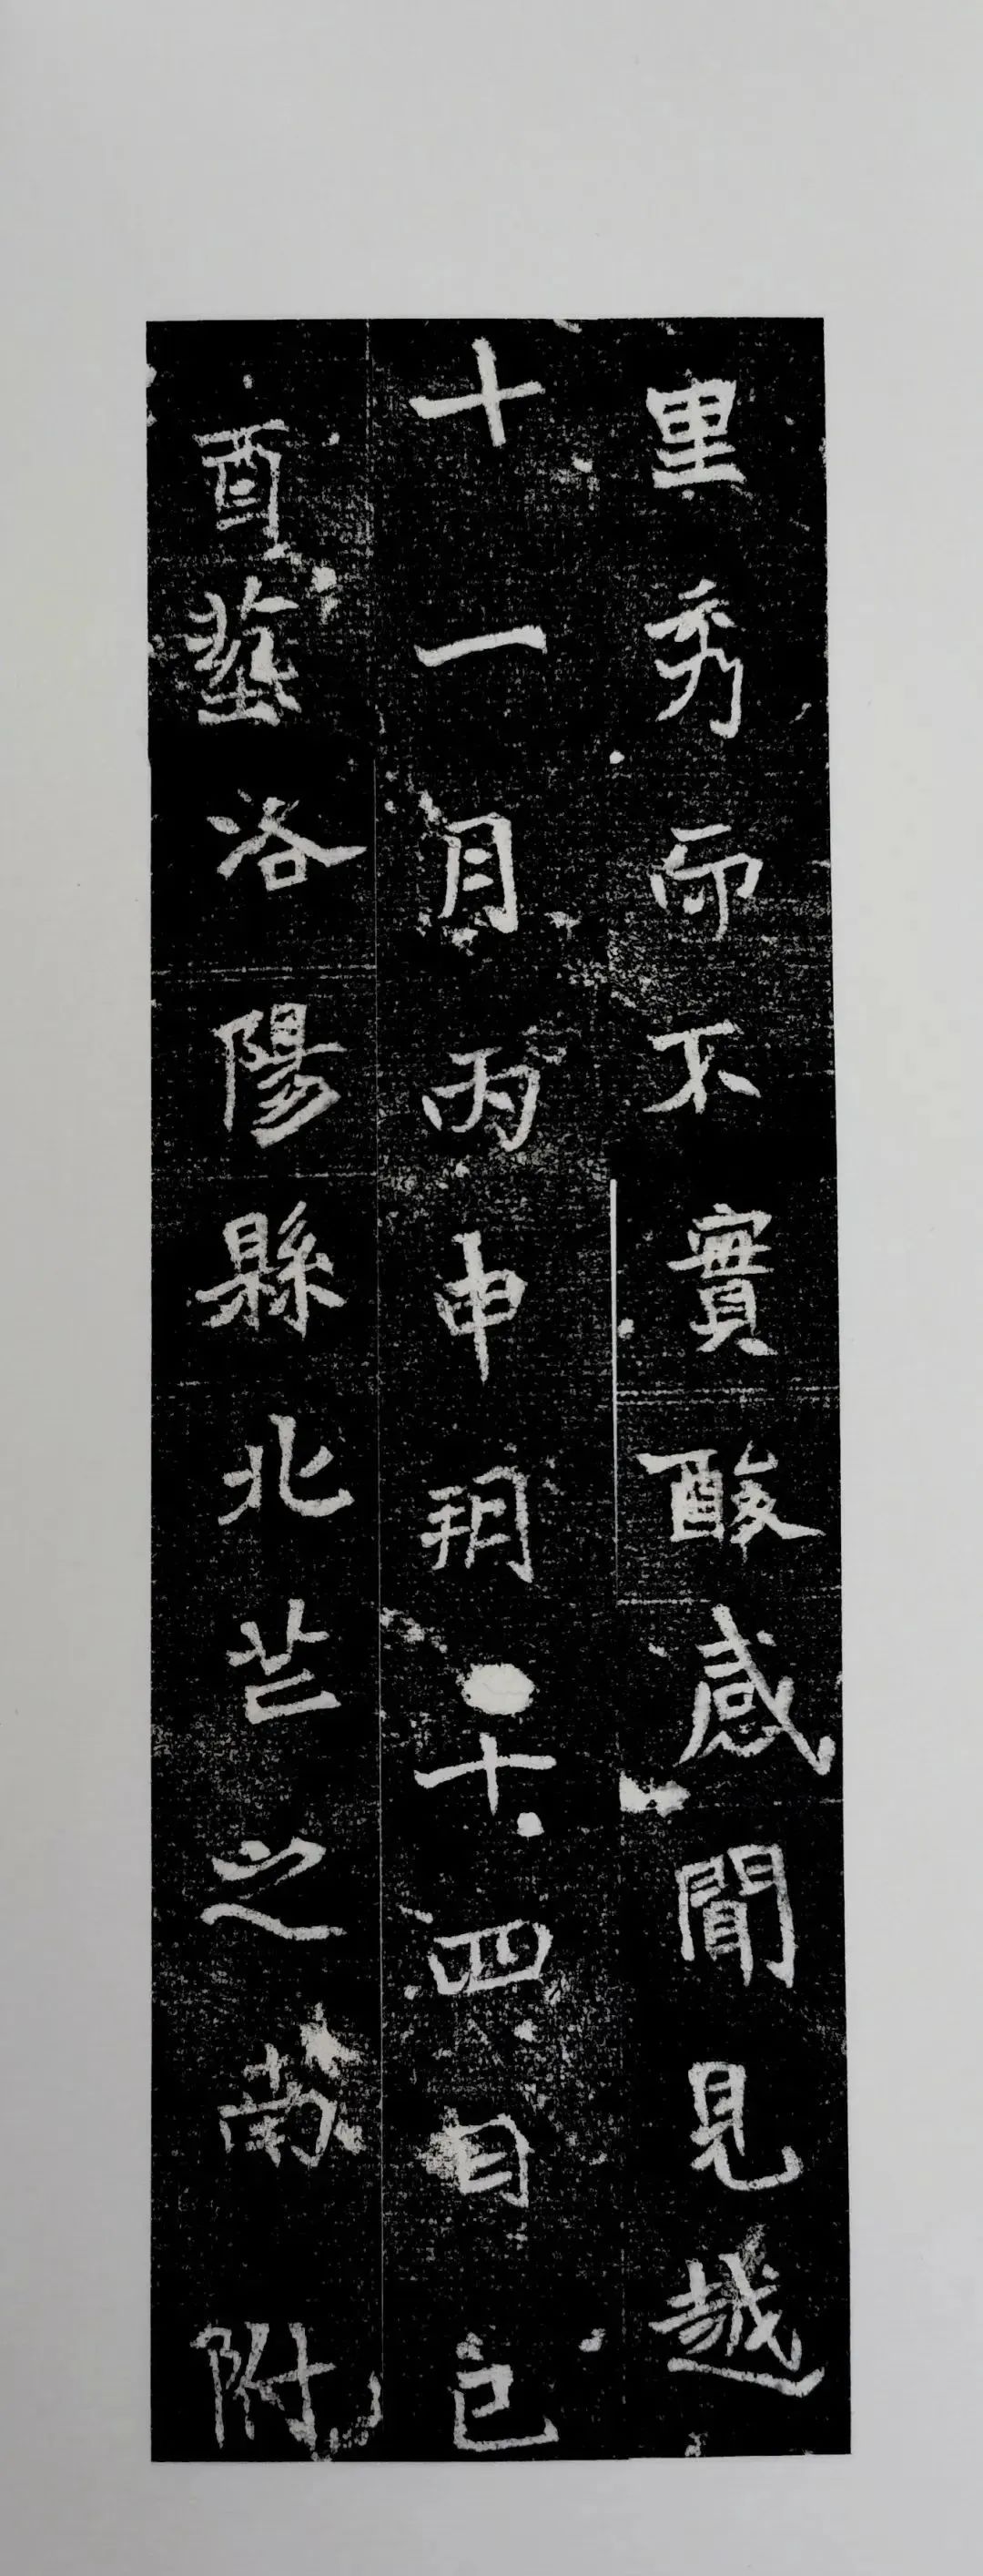 里秀而不實酸感聞見越
十一月丙申朔十四日己
酉塟洛陽縣北芒之南附